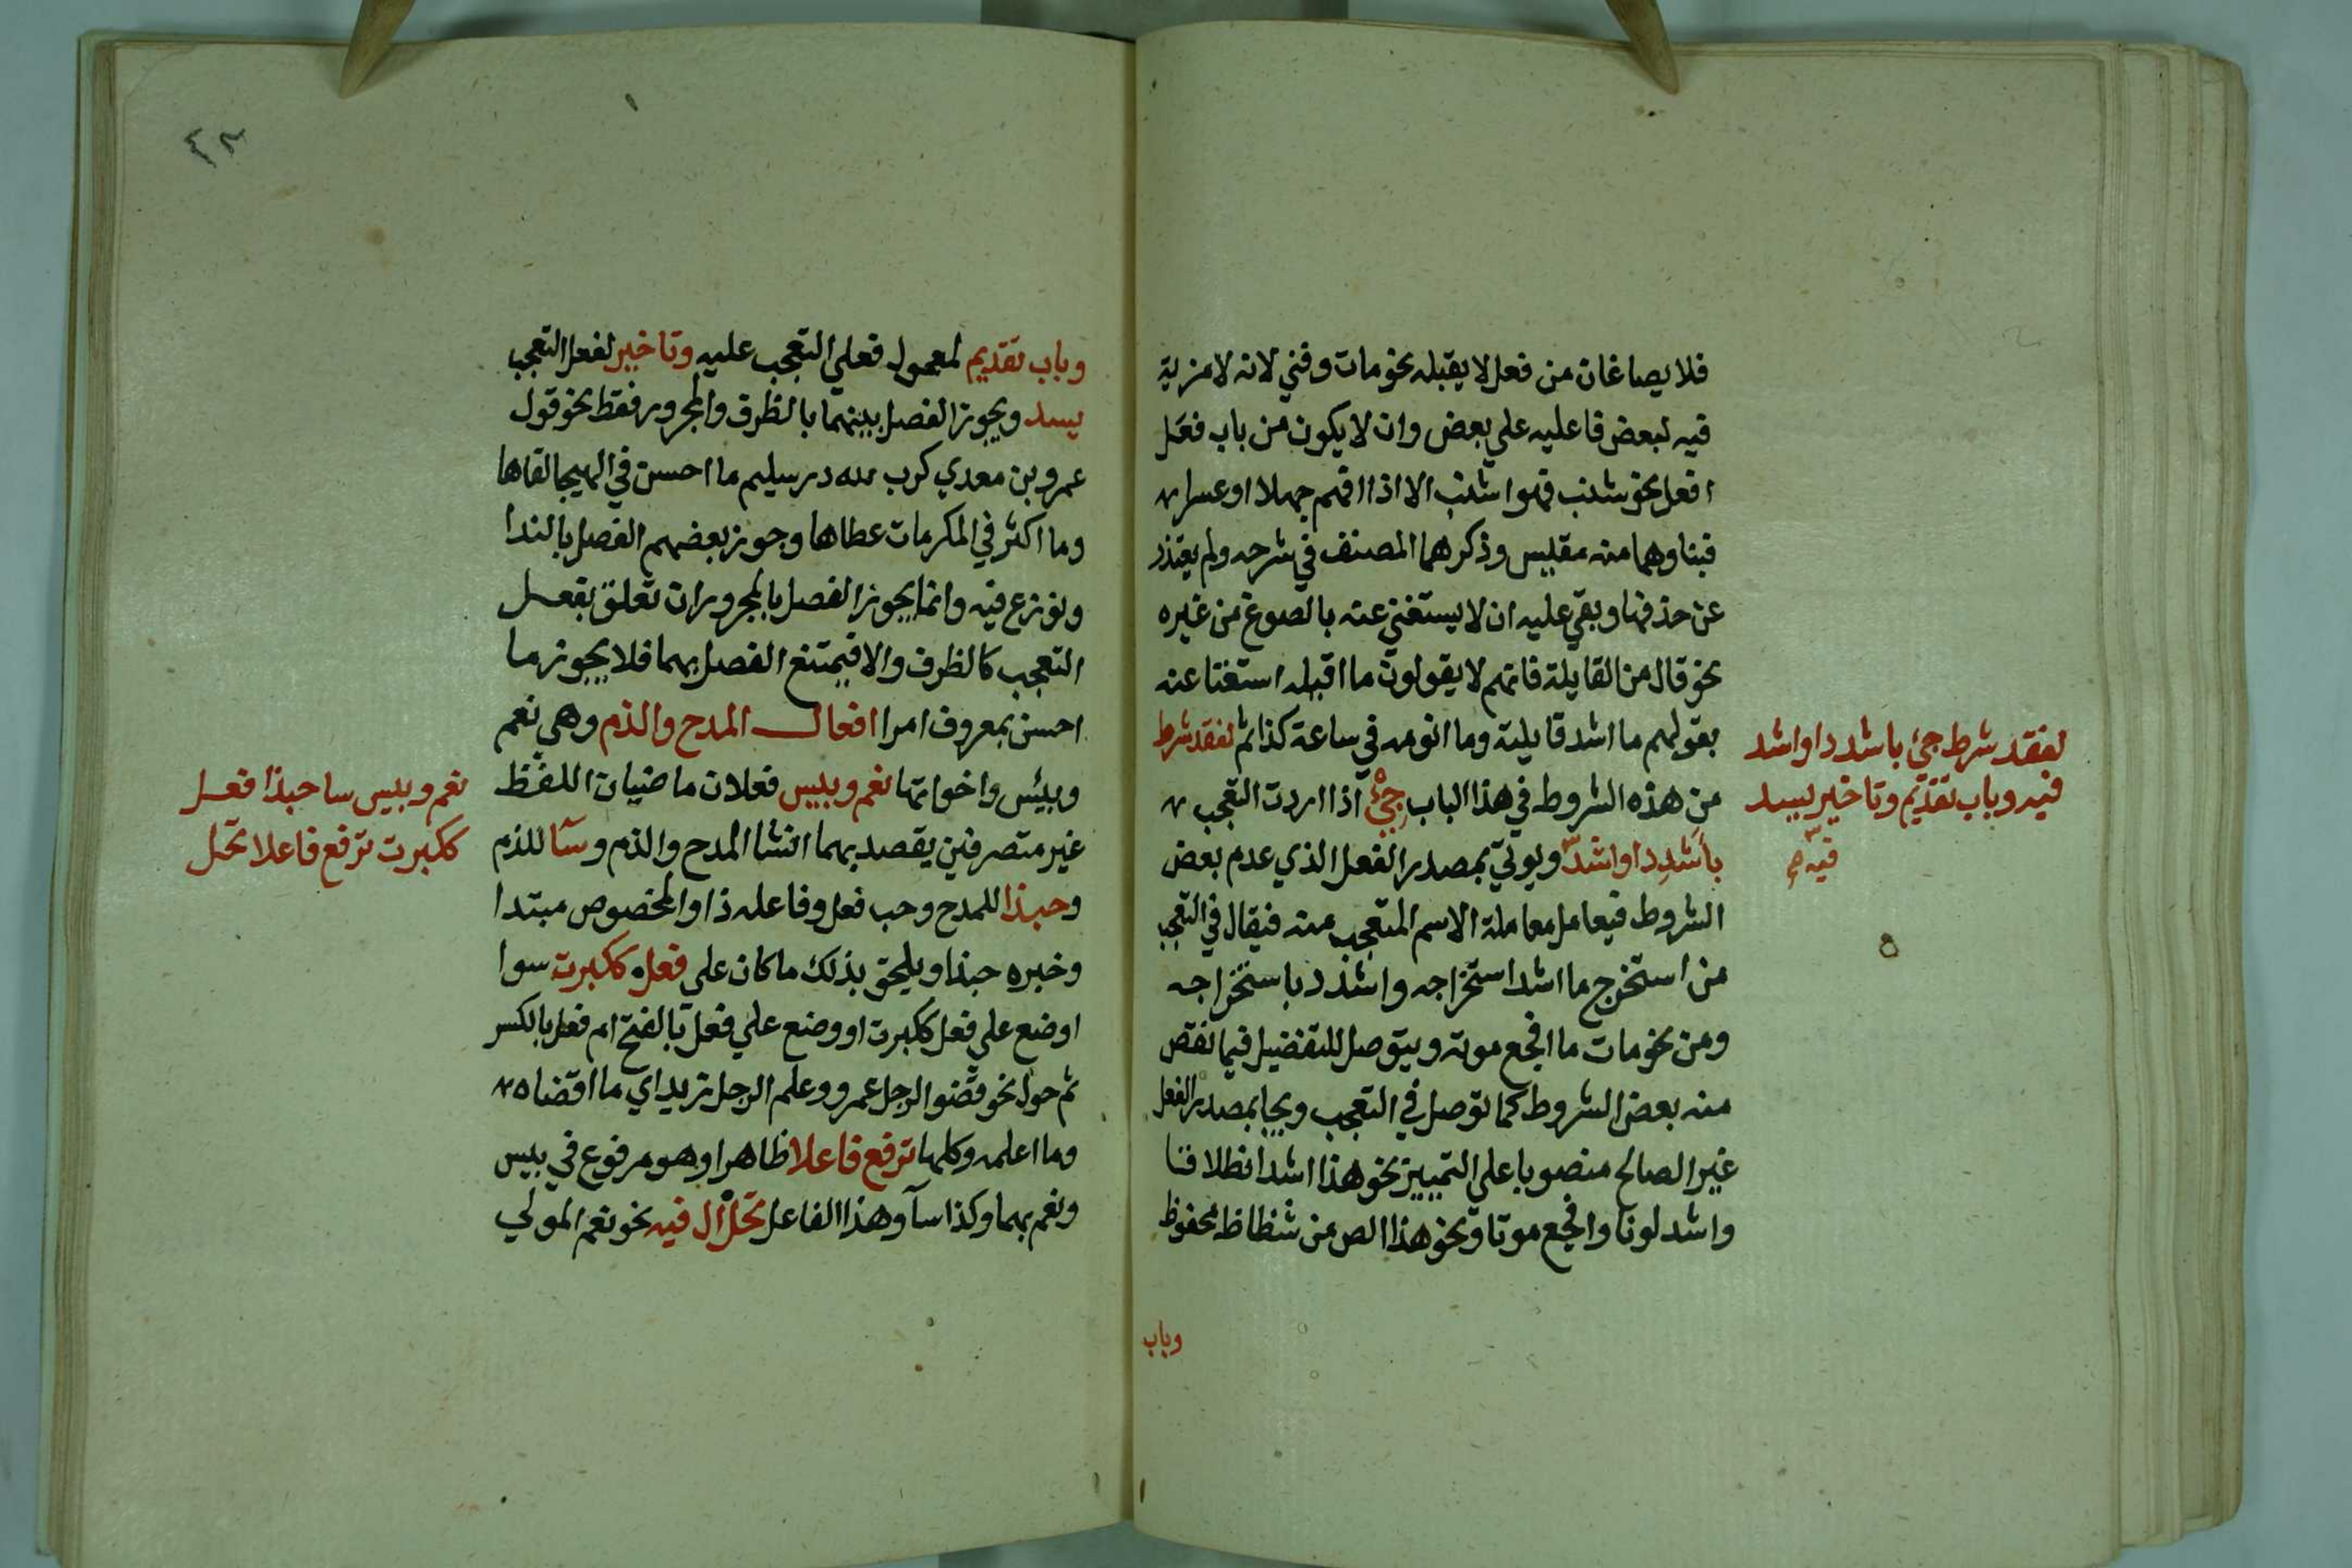 فلا يصاغان من فعل لا يقبله نحو مات وفني لانه لا مزية
فيه لبعض فاعليه علي بعض وان لا يكون من باب فعل
افعل نحو شنب فهو اشنب الا اذا افهم جهلا او عسرا
فبناوهما منه مقليس وذكرهما المصنف في شرحه ولم يعتذر
عن حذفها وبقي عليه ان لا يستغني عنه بالصوغ من غيره
نحو قال من القايلة فانهم لا يقولون ما اقيله استغنا عنه
بقولهم ما اشد قايلته وما انومه في ساعة كذا ثم لفقد شرط
من هذه الشروط في هذا الباب جئ اذا اردت التعجب
باشدد او اشد ويوتي بمصدر الفعل الذي عدم بعض
الشروط فيعامل معاملة الاسم المتعجب منه فيقال في التعجب
من استخرج ما اشد استخراجه واشدد باستخراجه
ومن نحو مات ما افجع موته ويتوصل للتفضيل فيما نقص
منه بعض الشروط كما توصل في التعجب ويجا بمصدر الفعل
غير الصالح منصوبا علي التمييز نحو هذا اشد انطلاقا
واشد لونا وافجع موتا ونحو هذا الص من شظاظ محفوظ
وباب
لفقد شرط جئ باشدد او اشد
فيه وباب تقديم وتاخير يسد
فيه
٤٣
وباب تقديم لمعمول فعلي التعجب عليه وتاخير لفعل التعجب
يسد ويجوز الفصل بينهما بالظرف والمجرور فقط نحو قول
عمرو بن معدي كرب لله در سليم ما احسن في الهيجا لقاها
وما اكثر في المكرمات عطاها وجوز بعضهم الفصل بالندا
ونوزع فيه وانما يجوز الفصل بالمجرور ان تعلق بفعل
التعجب كالظرف والا فيمتنع الفصل بهما فلا يجوز ما
احسن بمعروف امرا افعال المدح والذم وهي نعم
وبيئس واخواتها نعم وبيس فعلان ماضيان اللفظ
غير متصرفين يقصد بهما انشا المدح والذم وسا للذم
وحبذا للمدح وحب فعل وفاعله ذا والمخصوص مبتدا
وخبره حبذا ويلحق بذلك ما كان علي فعل ككبرت سوا
اوضع علي فعل ككبرت او وضع علي فعل بالفتح ام فعل بالكسر
ثم حول نحو قضو الرجل عمرو وعلم الرجل زيد اي ما اقضاه
وما اعلمه وكلها ترفع فاعلا ظاهرا وهو مرفوع في بيس
ونعم بهما وكذا سآ وهذا الفاعل تحل ال فيه نحو نعم المولي
نعم وبيس سا حبذا فعل
ككبرت ترفع فاعلا تحل